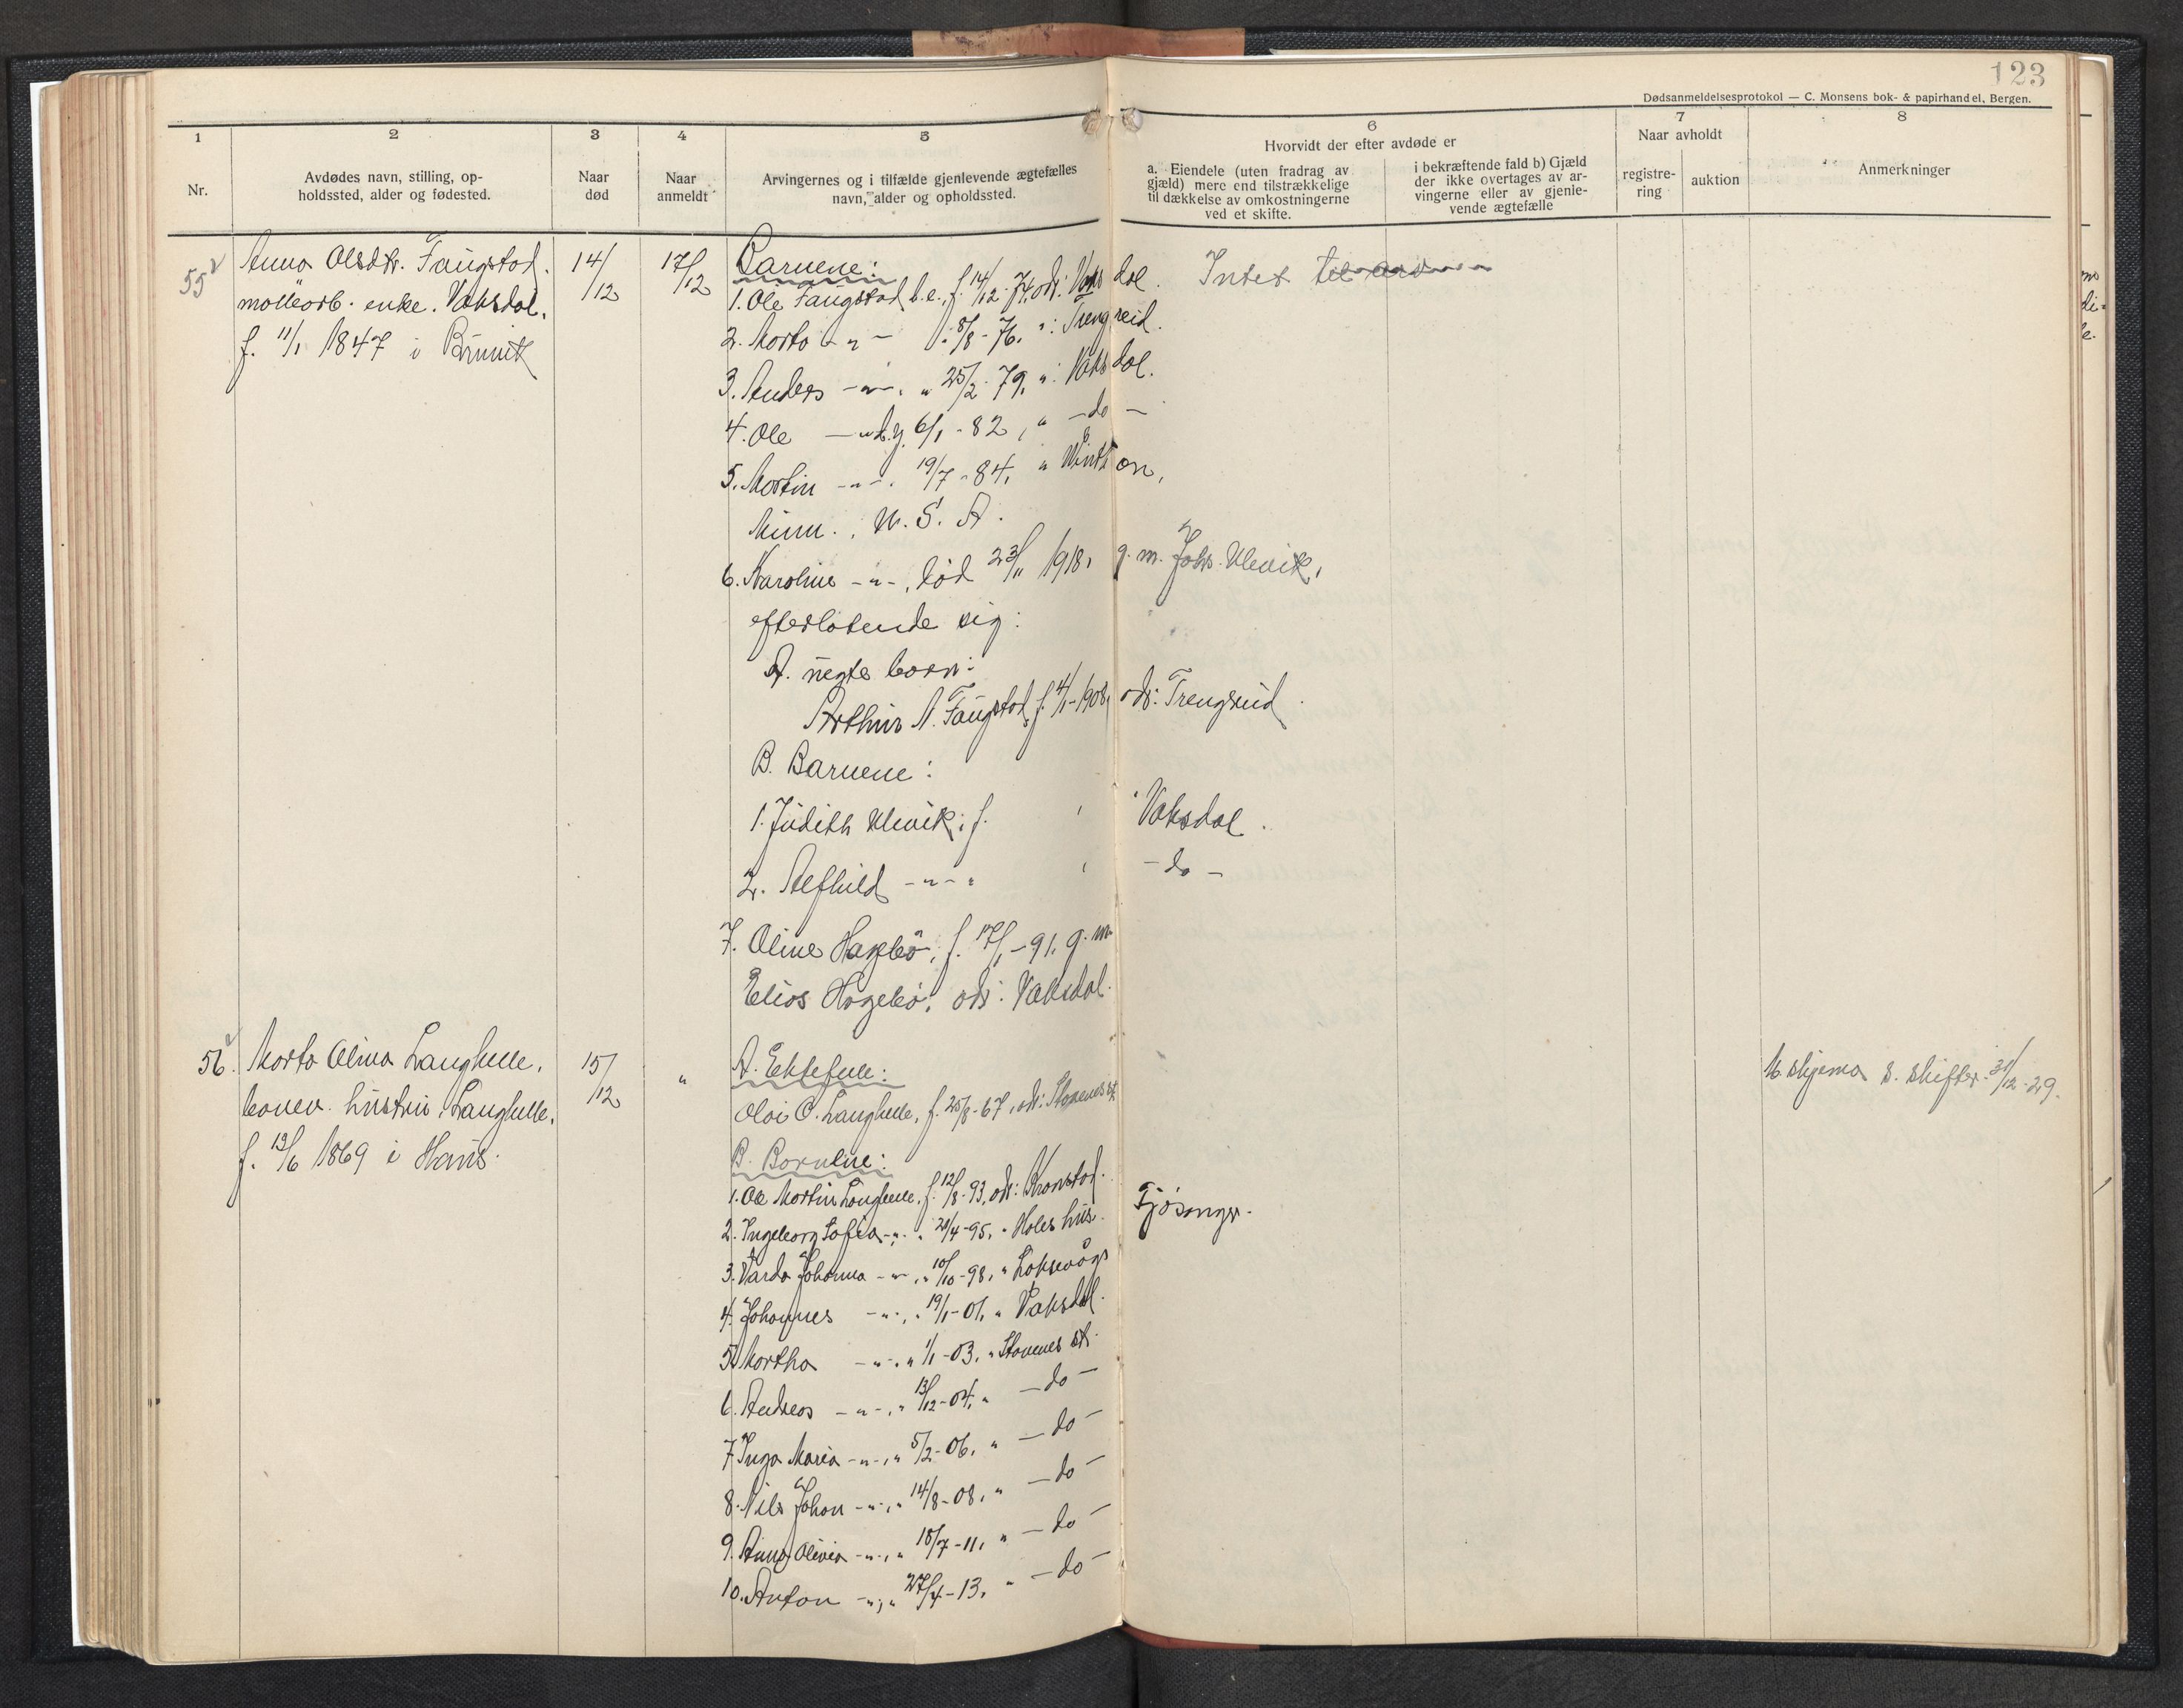 123
Dødsanmeldelsesprotokol — C. Monsens bok- & papirhandel, Bergen.
1
2
3
4
5
6
7
8
Nr.
Avdødes navn, stilling, op-
holdssted, alder og fødested.
Naar
død
Naar
anmeldt
Arvingernes og i tilfælde gjenlevende ægtefælles
navn, alder og opholdssted.
Hvorvidt der efter avdøde er
a. Eiendele (uten fradrag av
gjæld) mere end tilstrækkelige
til dækkelse av omkostningerne
ved et skifte.
i bekræftende fald b) Gjæld
der ikke overtages av ar-
vingerne eller av gjenle-
vende ægtefælle
Naar avholdt
registre-
ring
auktion
Anmerkninger
55
Anna Olsdtr. Faugstad.
møllearb. enke. Vaksdal.
f. 11/1 1847 i Bruvik
14/12
17/12
Barnene:
1. Ole Faugstad d.e., f. 14/12-74, ods: Vaksdal.
2. Marta -"- f. 8/8-76. ": Trengreid.
3. Anders -"-, " 25/2-79, ": Vaksdal.
4. Ole -"- d.y. 6/1-82, " -do-
5. Martin -"-. 19/7-84, "
Minn., U.S.A.
6. Karoline -"-, død 23/11 1918, g.m. Johs. Ulevik,
efterlatende sig:
A. uegte barn:
Arthur A. Faugstad, f. 4/1-1908, ods: Trengreid.
B. Barnene:
1. Judith Ulevik, f. , Vaksdal.
2. Alfhild -"- " , -do-
7. Oline Hagebø, f. 17/1-91. g.m.
Elias Hagebø, ods: Vaksdal.
Intet til
56.
Marta Olina Langhelle,
husstru, Langhelle,
f. 19/6 1869 i Haus.
15/12
"
A. Ektefelle:
Olai O. Langhelle, f. 25/8-67, ods: Stanenes st.
B. Barnene:
1. Ole Martin Langhelle, f. 12/8-93, ods: Kronstad.
2. Ingeborg Sofia -"-. " 20/4-95, " Holes hus. Fjøsanger.
3. Varda Johanna -"-, " 10/10-98, " Laksevåg
4. Johannes -"-, " 19/1-01, " Vaksdal.
5. Martha -"-, " 1/1-03, " Stanenes st.
6. Andreas -"-, " 13/12-04, " -do-
7. Inga Maria -"-, " 5/2-06, " -do-
8. Nils Johan -"-, " 14/8-08, " -do-
9. Anna Olivia -"-, " 18/7-11, " -do-
10. Anton -"-, " 27/4-13, " -do-
skjema s. skifter. 31/12-29.